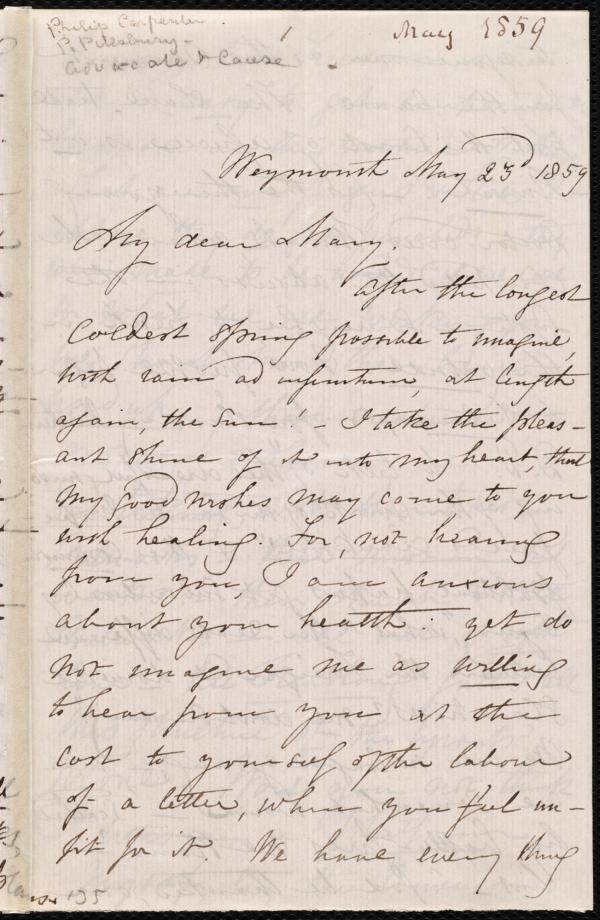 Philip Carpenter
P. Pillsbury -
Advocate & Cause
May 1859
Weymouth May 23d 1859
My dear Mary.
After the longest
coldest spring possible to imagine,
with rain ad infinitum, at length
again, the Sun! - I take the pleas-
ant shine of it into my heart, that
my good wishes may come to you
with healing. For, not hearing
from you, I am anxious
about your health: yet do
not imagine me as willing
to hear from you at the
cost to yourself of the labour
of a letter, when you feel un-
fit for it. We have every thing